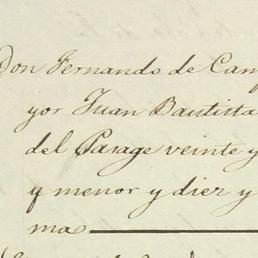 Don Fernando de Cam
yor Juan Bautista
del Parage veinte y
y menor y diez y
ma